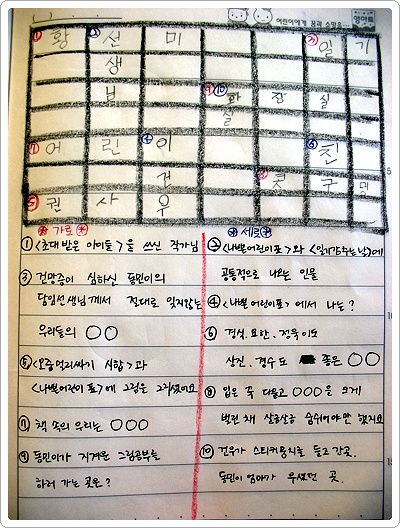 어린이에게 꿈과 소망을...
① 황 ② 선 미 ③ 일 기
생
님 ⑨ ⑩ 화 장 실
실
⑦ 어 린 ④ 이 ⑥ 친
건 ⑧ 구
⑤ 권 사 우
가로
① <초대 받은 아이들>을 쓰신 작가님
③ 건망증이 심하신 동민이의
담임선생님께서 절대로 잊지않는
우리들의 ○○
⑤ <오줌멀리싸기 시합>과
<나쁜어린이 표>에 그림을 그리셨어요
⑦ 책 속의 우리는 ○○○
⑨ 동민이가 지겨운 그림공부를
하러 가는 곳은?
세로
② <나쁜어린이표>와 <일기감추는날>에
공통적으로 나오는 인물
④ <나쁜 어린이표>에서 나는?
⑥ 경식, 요한, 정욱이도
상진, 경수도 좋은 ○○
⑧ 입은 꼭 다물고 ○○○을 크게
벌린 채 살금살금 숨쉬어야만 했지요
⑩ 건우가 스티커뭉치를 들고 간곳.
동민이 엄마가 우셨던 곳.